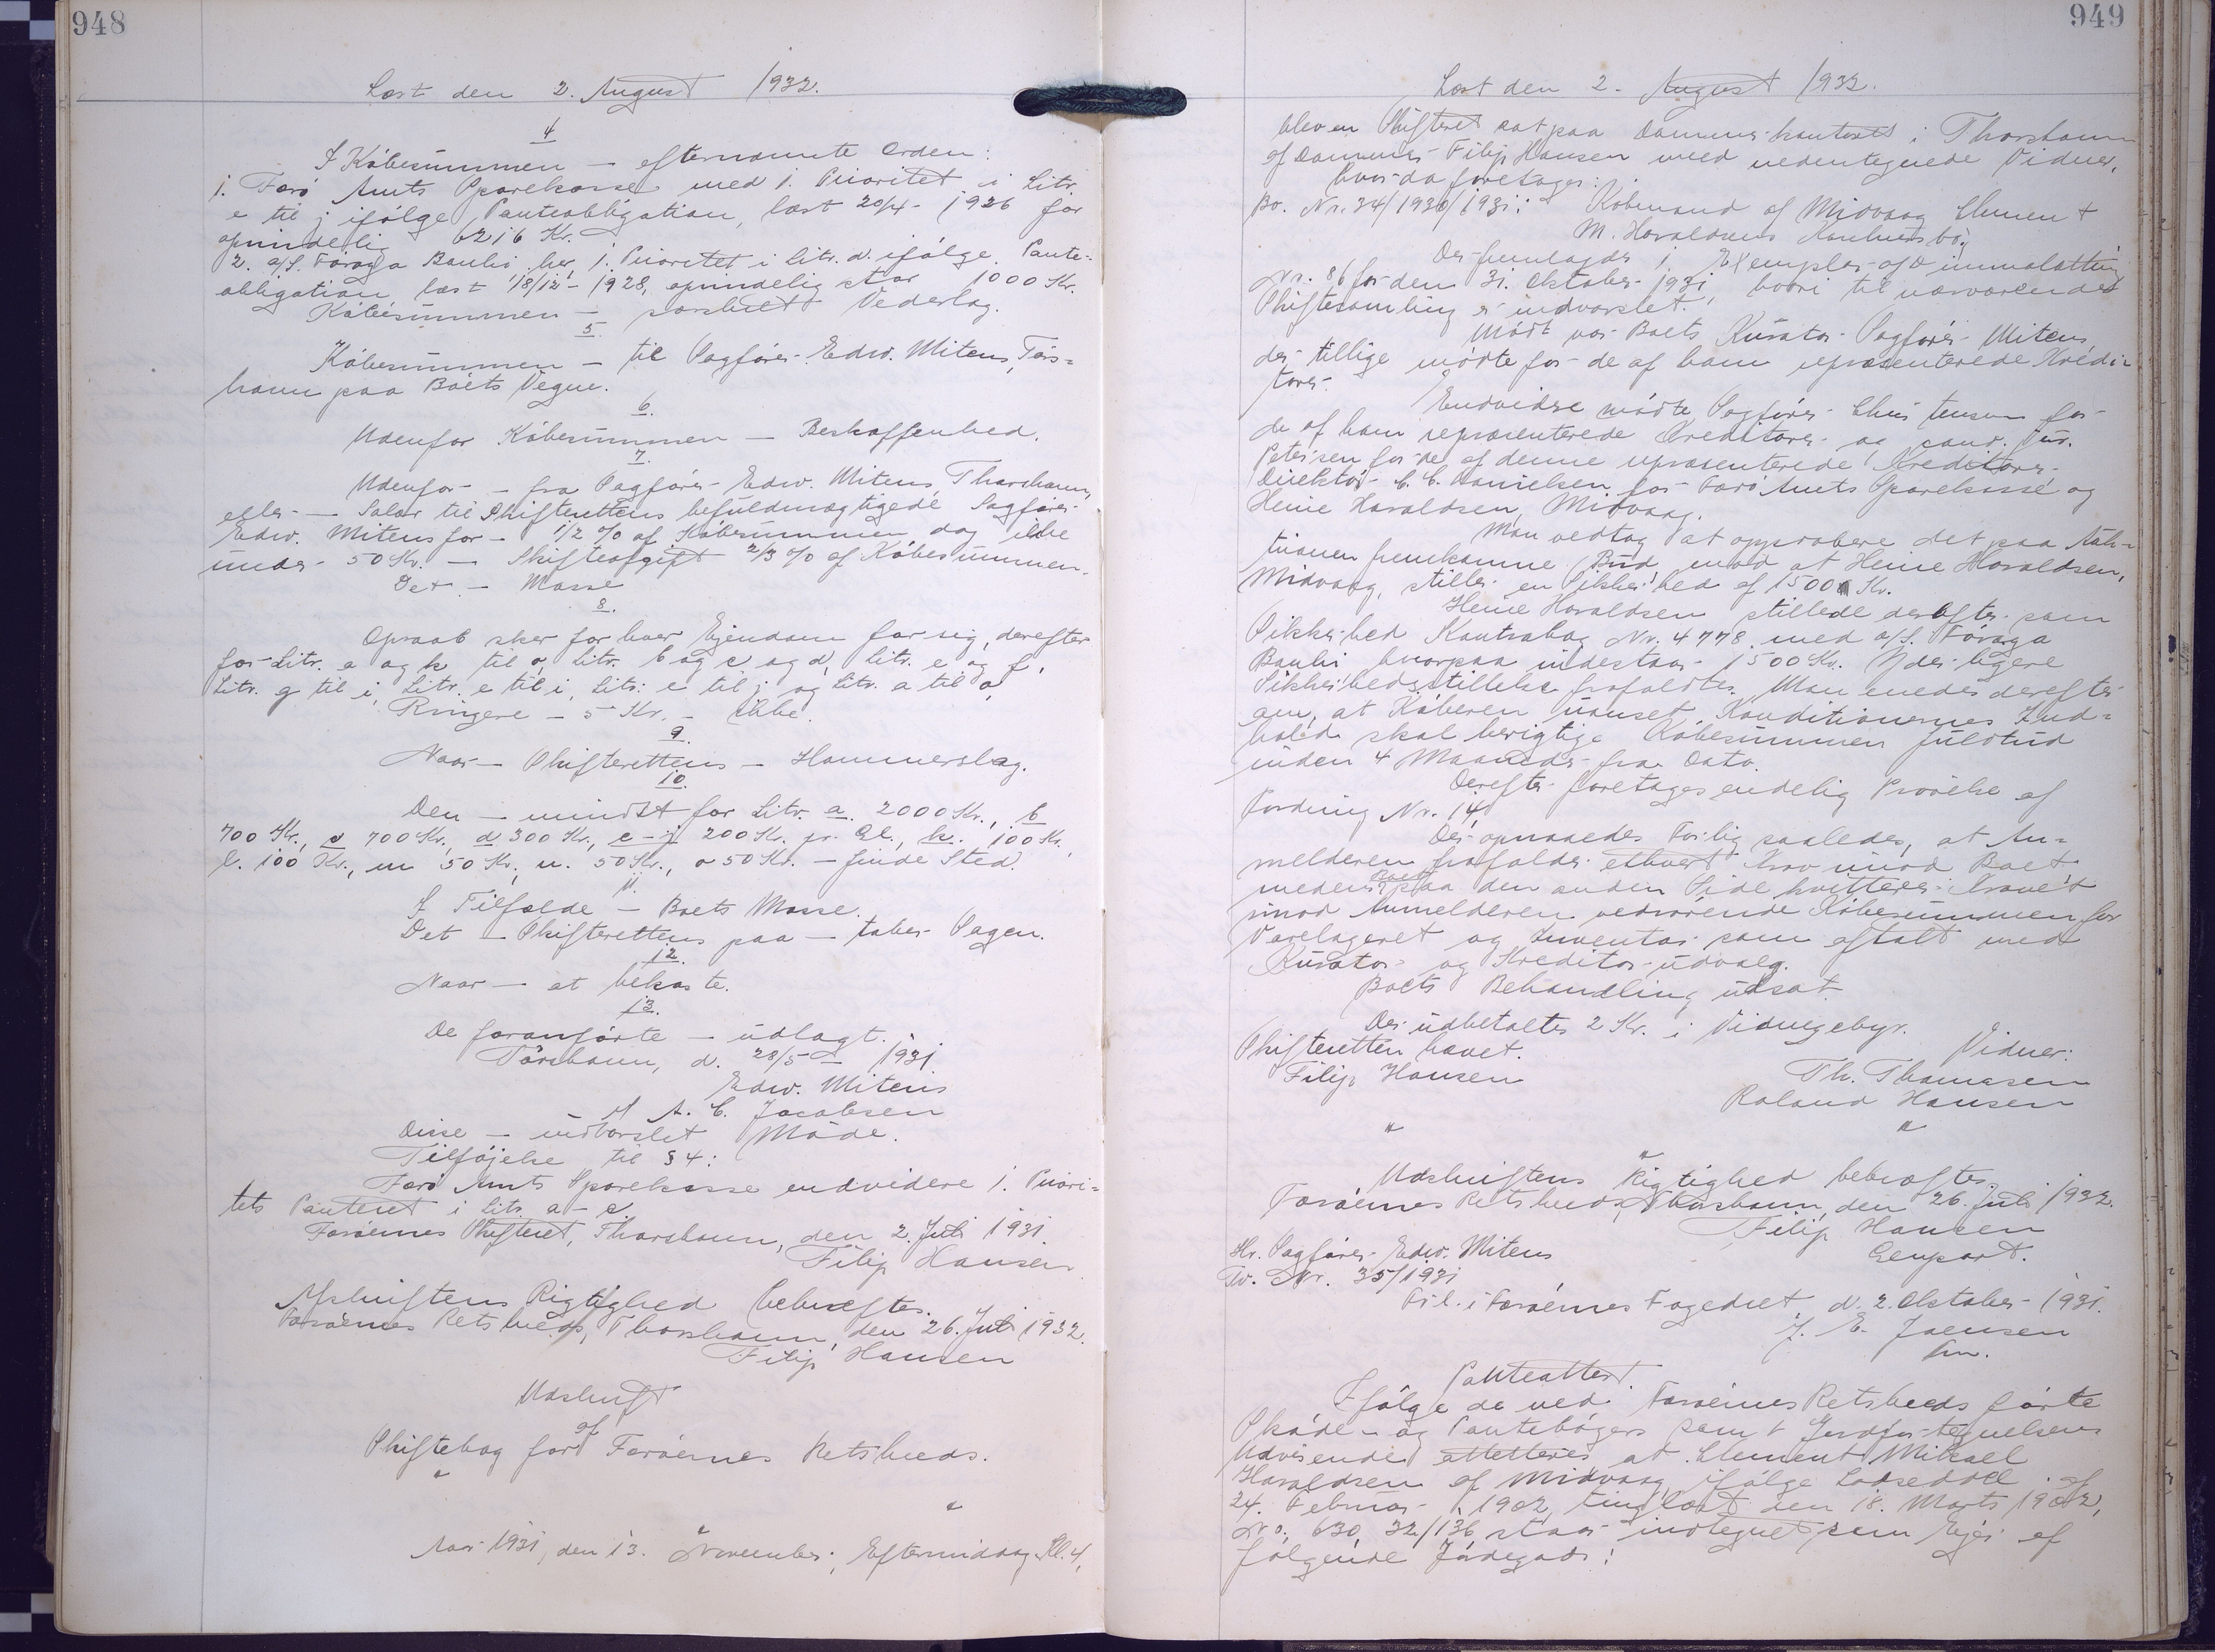 948
Læst den 2. August 1932.
4
I Købesummen — efternævnte Orden:
1. Færø Amts Sparekasse med 1. Prioritet i Litr.
e til j ifølge Panteobligation, læst 20/4 - 1926 for
oprindelig 6216 Kr.
2. A/S. Føroya Banki her 1. Prioritet i Litr. d. ifølge Pante-
obligation læst 18/12 - 1928, oprindelig stor 1000 Kr.
Købesummen — særskilt Vederlag.
5.
Købesummen — til Sagfører Edw. Mitens, Tórs-
havn paa Boets Vegne.
6.
Udenfor Købesummen — Beskaffenhed.
7.
Udenfor — fra Sagfører Edw. Mitens, Thorshavn,
eller — Salær til Skifterettens befuldmægtigede Sagfører
Edw. Mitens for — 1/2 % af Købesummen dog ikke
under 50 Kr. — Skifteafgift 2/3 % af Købesummen.
Det — Masse
8.
Opraab sker for hver Ejendom for sig, derefter
for Litr. a og k til o, Litr. b og c og d, Litr. e og f,
Litr. g til i, Litr. e til i, Litr. e til j og Litr. a til o,
Ringere — 5 Kr. — ikke.
9.
Naar — Skifterettens — Hammerslag.
10.
Den — mindst for Litr. a. 2000 Kr., b
700 Kr., c 700 Kr., d 300 Kr., e - j 200 Kr. pr. Gl., k. 100 Kr.,
l. 100 Kr., m 50 Kr., n. 50 Kr., o 50 Kr. — finde Sted.
11.
I Tilfælde — Boets Masse.
Det — Skifterettens paa — taber Sagen.
12.
Naar — at bekoste.
13.
De foranførte — udlagt.
Tórshavn, d. 28/5 - 1931
Edw. Mitens
A. C. Jacobsen
Disse — indvarslet Møde.
Tilføjelse til § 4:
Færø Amts Sparekasse endvidere 1. Priori-
tets Panteret i Litr. a - c.
Færøernes Skifteret, Thorshavn, den 2. Juli 1931.
Filip Hansen
Afskriftens Rigtighed bekræftes.
Færøernes Retskreds, Thorshavn, den 26. Juli 1932.
Filip Hansen
Udskrift
af
Skiftebog for Færøernes Retskreds.
"
"
Aar 1931, den 13. November, Eftermiddag Kl. 4,
949
Læst den 2. August 1932.
blev en Skifteret sat paa Dommerkontoret i Thorshavn
af Dommer Filip Hansen med undertegnede Vidner,
hvor da foretages:
Bo. Nr. 34/1930/1931: Købmand af Midvaag Clement
M. Haraldsens Konkursbo.
Der fremlagdes 1 Exemplar af Dimmalætting
Nr. 86 for den 31. Oktober 1931, hvori til nærværende
Skiftesamling er indvarslet.
Mødt var Boets Kurator Sagfører Mitens,
der tillige mødte for de af ham repræsenterede Kredi-
torer.
Endvidere mødte Sagfører Christensen for
de af ham repræsenterede Kreditorer og cand. jur.
Petersen for de af denne repræsenterede Kreditorer
Direktør C. C. Danielsen for Færø Amts Sparekasse og
Heine Haraldsen, Midvaag.
Man vedtog at approbere det paa Auk-
tionen fremkomne Bud mod at Heine Haraldsen,
Midvaag, stiller en Sikkerhed af 1500 Kr.
Heine Haraldsen stillede derefter som
Sikkerhed Kontrabog Nr. 4778 med A/S. Føroya
Banki hvorpaa indestaar 1500 Kr. Yderligere
Sikkerhedsstillelse frafaldtes. Man enedes derefter
om, at Køberen uanset Konditionernes Ind-
hold skal berigtige Købesummen fuldtud
inden 4 Maaneder fra Dato.
Derefter foretages endelig Prøvelse af
Fordring Nr. 14.
Der opnaaedes Forlig saaledes, at An-
melderen frafalder ethvert Krav mod Boet
medens Boet paa den anden Side kvitterer Kravet
imod Anmelderen vedrørende Købesummen for
Varelageret og Inventar som aftalt med
Kurator og Kreditorudvalg.
Boets Behandling udsat.
Der udbetaltes 2 Kr. i Vidnegebyr.
Skifteretten hævet. Vidner:
Filip Hansen Th. Thomasen
Roland Hansen
" "
"
Udskriftens Rigtighed bekræftes.
Færøernes Retskreds, Thorshavn, den 26. Juli 1932.
Filip Hansen
Genpart.
Hr. Sagfører Edw. Mitens
Tv. Nr. 35/1931
Til. i Færøernes Fogedret, d. 2. Oktober 1931.
J. E. Joensen
fm.
Panteattest.
Ifølge de ved Færøernes Retskreds førte
Skøde- og Pantebøger samt Jordfortegnelsens
Udvisende attesteres at Clement Mikael
Haraldsen af Midvaag ifølge Lodseddel af
24. Februar 1902 tinglæst den 18. Marts 1902,
No. 630 32/136 staar indtegnet som Ejer af
følgende Jordegods: